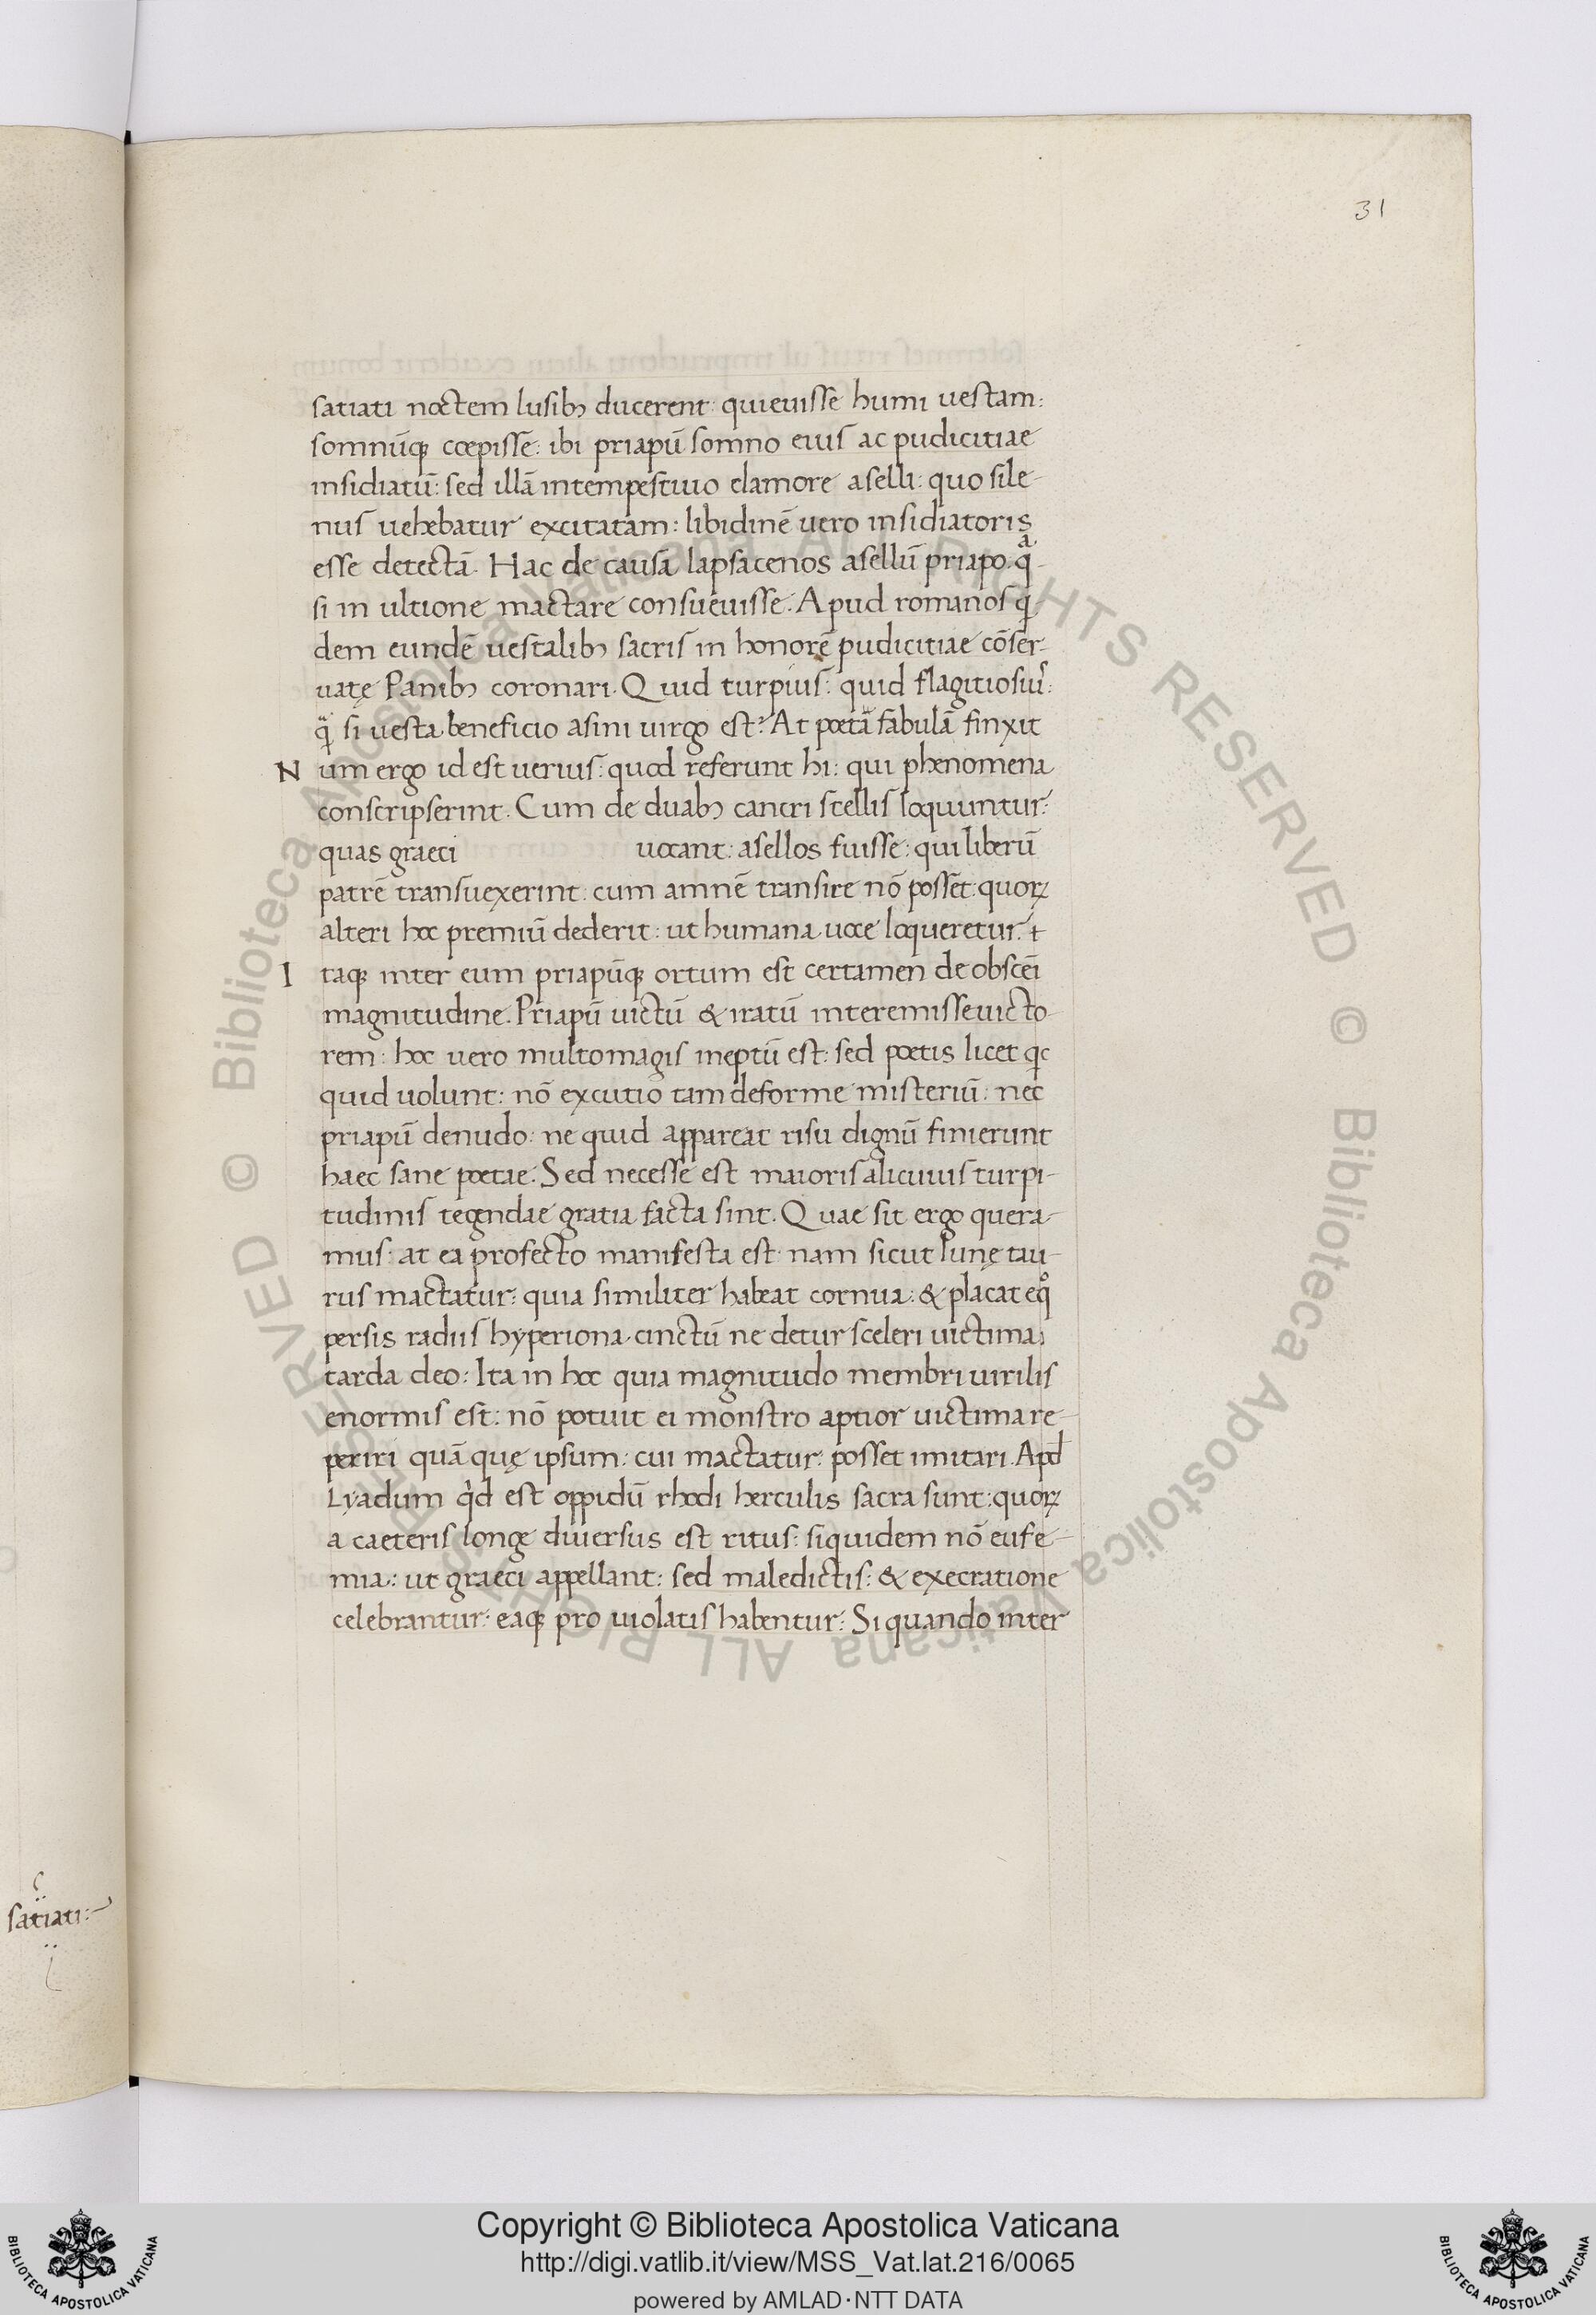 31
satiati noctem lusibꝫ ducerent: quieuisse humi uestam:
somnūqꝫ cœpisse: ibi priapū somno eius ac pudicitiae
insidiatū: sed illā intempestiuo clamore aselli: quo sile-
nus uehebatur excitatam: libidinē uero insidiatoris
esse detectā. Hac de causa lapsacenos asellū priapo. qͣ-
si in ultione mactare consueuisse. Apud romanos q-
dem eundē uestalibꝫ sacris in honorē pudicitiae cōser-
uatę Panibꝫ coronari. Quid turpius: quid flagitiosiꝰ:
qͣ si uesta beneficio asini uirgo est? At poetā fabulā finxit
N um ergo id est uerius: quod referunt hi: qui phenomena
conscripserint. Cum de duabꝫ cancri stellis loquuntur:
quas graeci uocant: asellos fuisse: qui liberū
patrē transuexerint: cum amnē transire nō possēt: quoꝝ
alteri hoc premiū dederit: ut humana uoce loqueretur. t
I taqꝫ inter eum priapūqꝫ ortum est certamen de obscēi
magnitudine. Priapū uictū & iratū interemisse uicto-
rem: hoc uero multo magis ineptū est: sed poetis licet qc
quid uolunt: nō excutio tam deforme misteriū: nec
priapū denudo: ne quid appareat risu dignū finierunt
haec sane poetae. Sed necesse est maioris alicuius turpi-
tudinis tegendae gratia facta sint. Quae sit ergo quera-
mus: at ea profecto manifesta est: nam sicut lunę tau-
rus mactatur: quia similiter habeat cornua: & placat eqͦ
persis radiis hyperiona cinctū ne detur sceleri uictima
tarda deo: Ita in hoc quia magnitudo membri uirilis
enormis est: nō potuit ei monstro aptior uictima re-
periri quā quę ipsum: cui mactatur: posset imitari. Apd
Lyadum qͥd est oppidū rhodi herculis sacra sunt: quoꝝ
a caeteris longe diuersus est ritus: siquidem nō eufe-
mia: ut graeci appellant: sed maledictis: & execratione
celebrantur: eaqꝫ pro uiolatis habentur: Si quando inter
satiati:
Copyright © Biblioteca Apostolica Vaticana
http://digi.vatlib.it/view/MSS_Vat.lat.216/0065
powered by AMLAD·NTT DATA
BIBLIOTECA APOSTOLICA VATICANA
BIBLIOTECA APOSTOLICA VATICANA
© Biblioteca Apostolica Vaticana ALL RIGHTS RESERVED
© Biblioteca Apostolica Vaticana ALL RIGHTS RESERVED